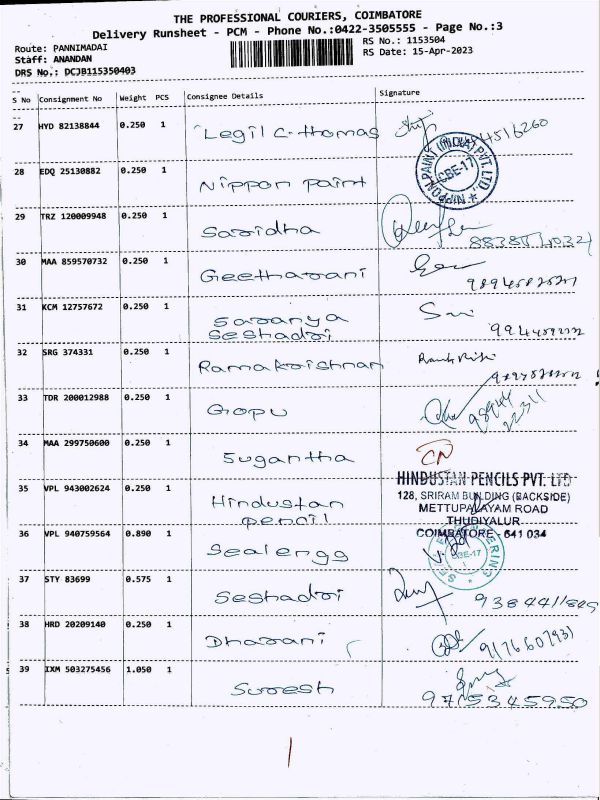 THE PROFESSIONAL COURIERS, COIMBATORE
Delivery Runsheet - PCM - Phone No.:0422-3505555 - Page No.:3
Route: PANNIMADAI
RS No.: 1153504
Staff: ANANDAN
RS Date: 15-Apr-2023
DRS No.: DCJB115350403
S No Consignment No Weight PCS Consignee Details Signature
27 HYD 82138844 0.250 1 Legil C. thomas
28 EDQ 25130882 0.250 1 Nippon paint
NIPPON PAINT (INDIA) PVT. LTD * CBE-17
29 TRZ 120009948 0.250 1 Saridha
30 MAA 859570732 0.250 1 Geetharani
31 KCM 12757672 0.250 1 Saranya
Seshadri
32 SRG 374331 0.250 1 Ramakrishnan
33 TDR 200012988 0.250 1 Gopu
34 MAA 299750600 0.250 1 Sugantha CN
HINDUSTAN PENCILS PVT. LTD
128, SRIRAM BUILDING (BACKSIDE)
METTUPALAYAM ROAD
THUDIYALUR
COIMBATORE - 641 034
35 VPL 943002624 0.250 1 Hindustan
pencil
36 VPL 940759564 0.890 1 Seal engg
CBE-17
37 STY 83699 0.575 1 Seshadri
38 HRD 20209140 0.250 1 Dharani 9176607931
39 IXM 503275456 1.050 1 Suresh
9715345950